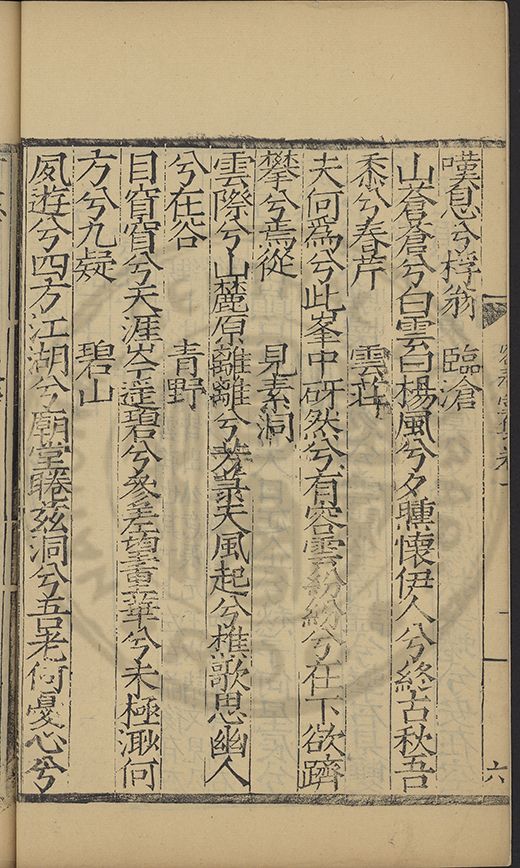 嘆息兮桴翁　臨滄
山蒼蒼兮白雲白楊風兮夕曛懷伊人兮終古秋吾
黍兮春芹　雲莊
夫何爲兮此峯中砑然兮有容雲紛紛兮在下欲躋
攀兮焉從　見素洞
雲際兮山麓原離離兮荒菉天風起兮樵歌思幽人
兮在谷　青野
目窅窅兮天涯岑遥碧兮參差望重華兮未極渺何
方兮九疑　碧山
夙遊兮四方江湖兮廟堂睠玆洞兮吾老何憂心兮
六